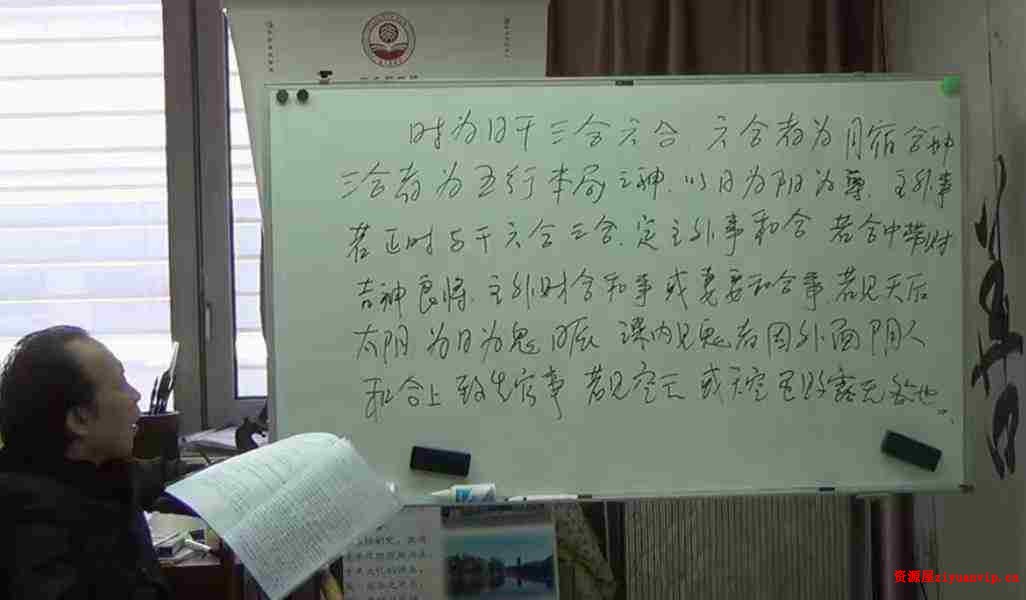 时为日干三合六合、六合者为月宿合神
三合者为五行本局之神、以日为阳为尊、主外事
若正时与干六合三合、定主外事和合 若合中带财
吉神良将、主外财合和事或妻妾和合事 若见天后
太阴 为日为鬼 日辰 课内见鬼者因外面阴人
和合上 致生官事 若见空亡 或天空 五
资源屋ziyuanvip.cn